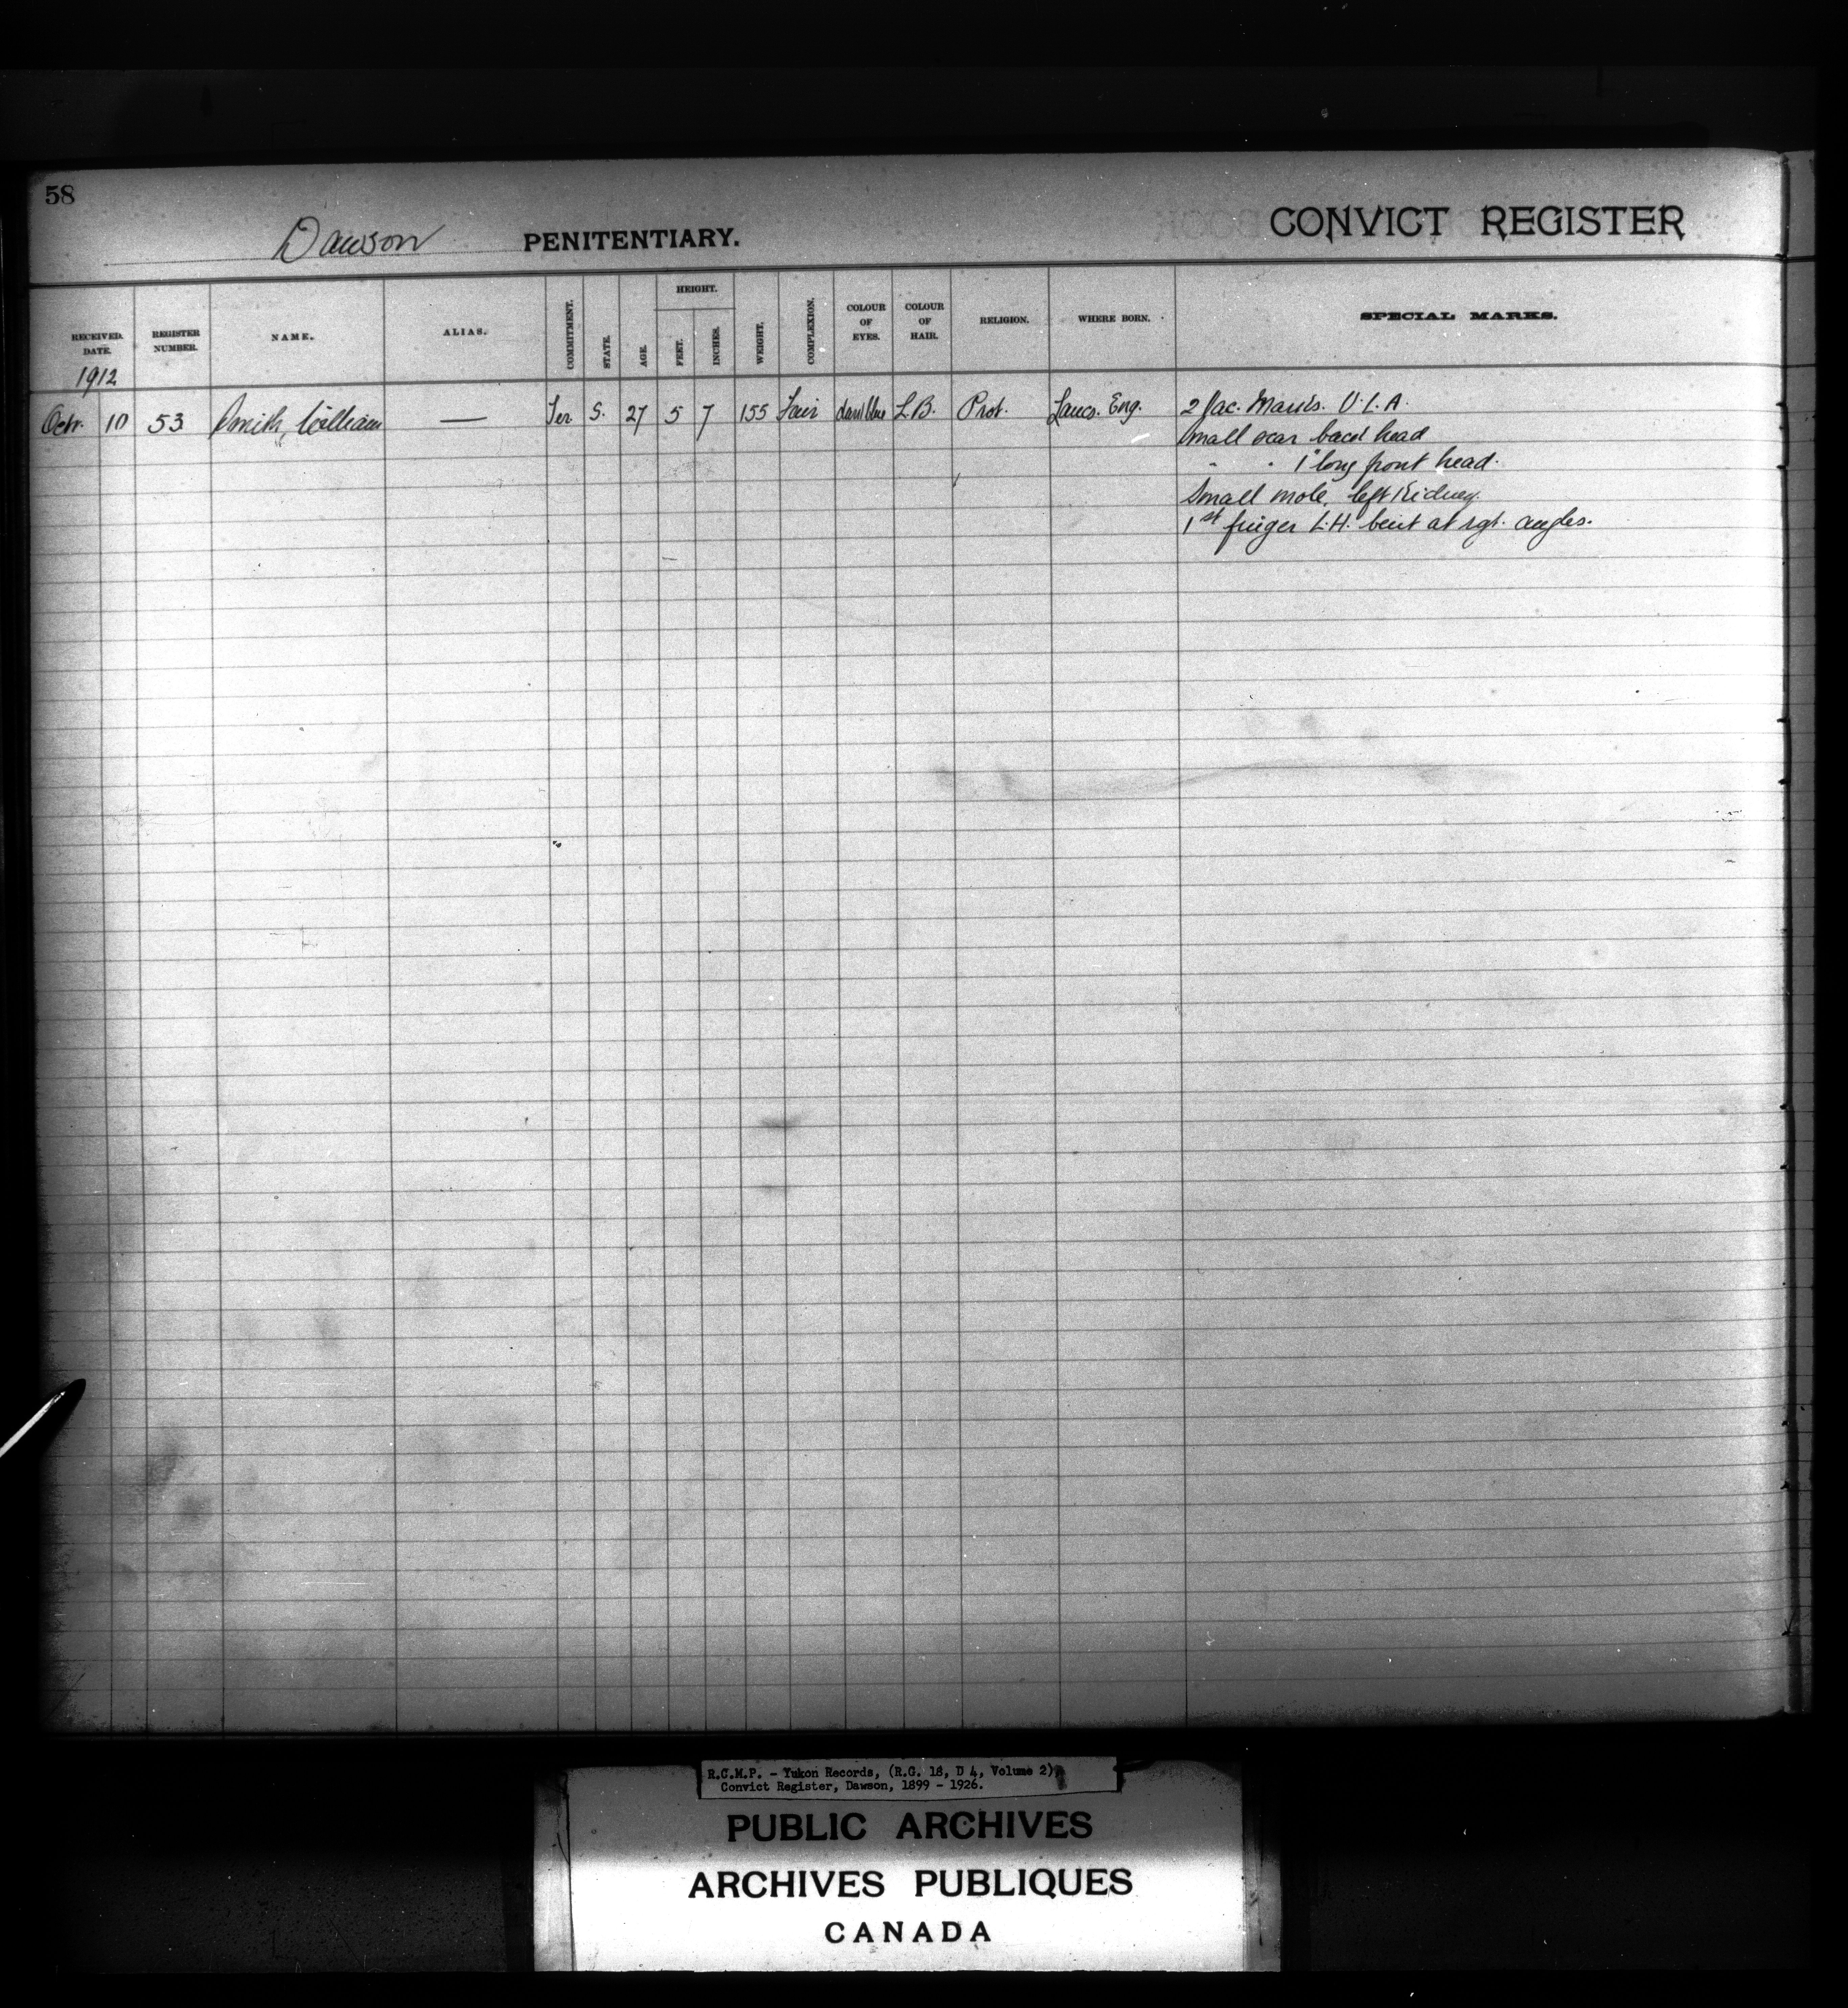 58
Dawson PENITENTIARY.
CONVICT REGISTER
RECEIVED. DATE. REGISTER NUMBER. NAME. ALIAS. COMMITMENT. STATE. AGE. HEIGHT. FEET. INCHES. WEIGHT. COMPLEXION. COLOUR OF EYES. COLOUR OF HAIR. RELIGION. WHERE BORN. SPECIAL MARKS.
1912
Octr. 10 53 Smith, William — S. 27 5 7 155 Fair L.B. Prot. Lancs. Eng. 2 Vac. Marks. U.L.A.
Small scar back head
" " 1" long front head.
Small mole, left Kidney.
1st finger L.H. bent at rgt. angles.
R.C.M.P. - Yukon Records, (R.G. 18, D 4, Volume 2)
Convict Register, Dawson, 1899 - 1926.
PUBLIC ARCHIVES
ARCHIVES PUBLIQUES
CANADA